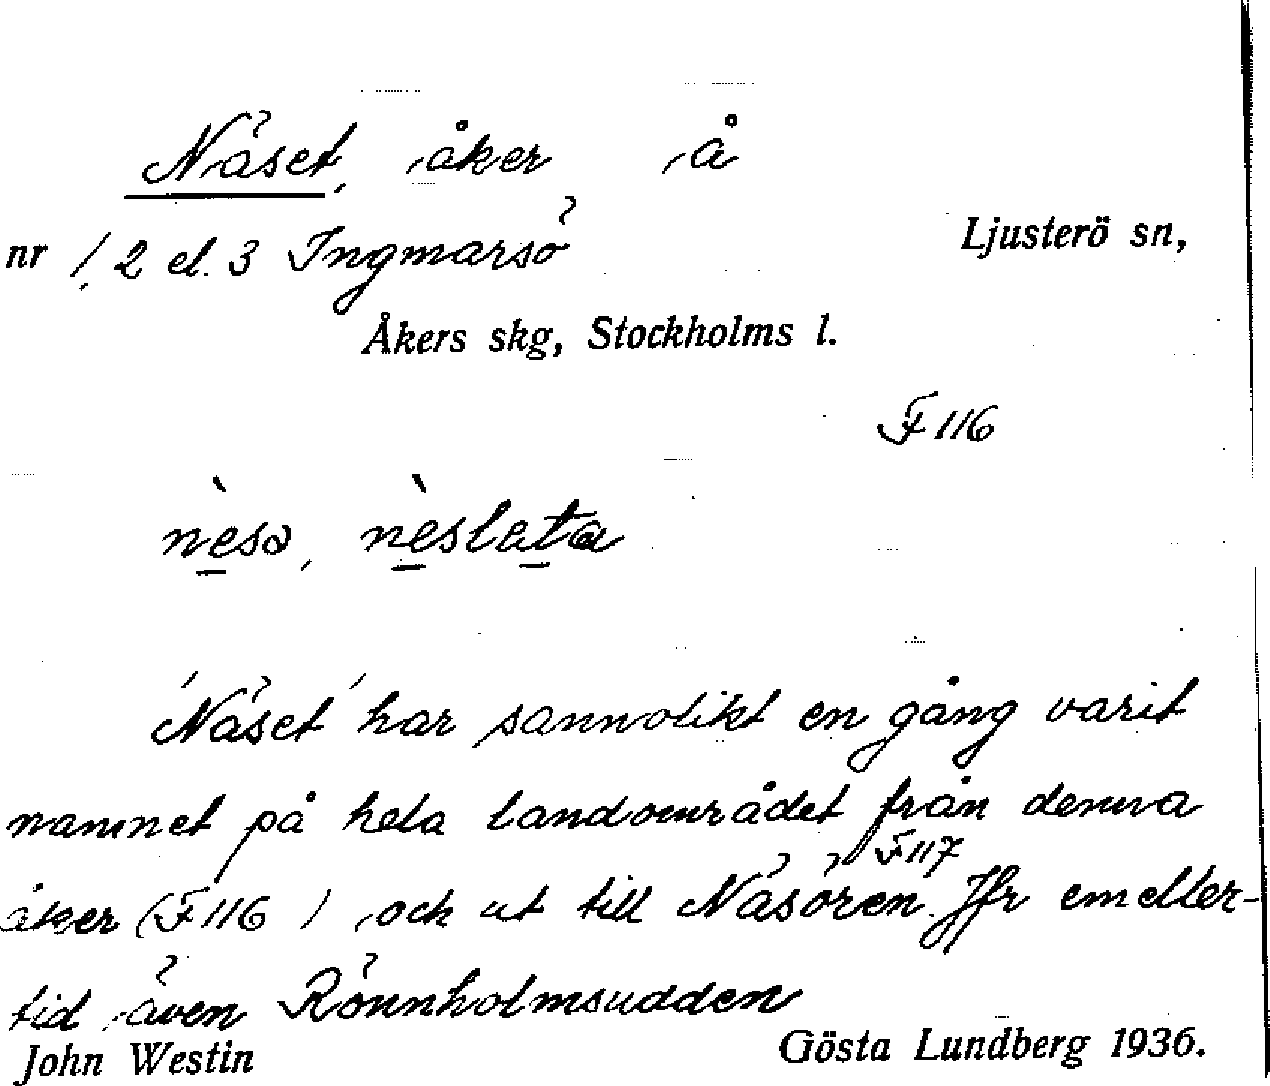 Näset, åker å
nr 1, 2 el. 3 Ingmarsö Ljusterö sn,
Åkers skg, Stockholms l.
F 116
nèsə, nèsleta
'Näset' har sannolikt en gång varit
namnet på hela landområdet från denna
åker (F 116) och ut till Näsören F 117. Jfr emeller-
tid även Rönnholmsudden
John Westin Gösta Lundberg 1936.